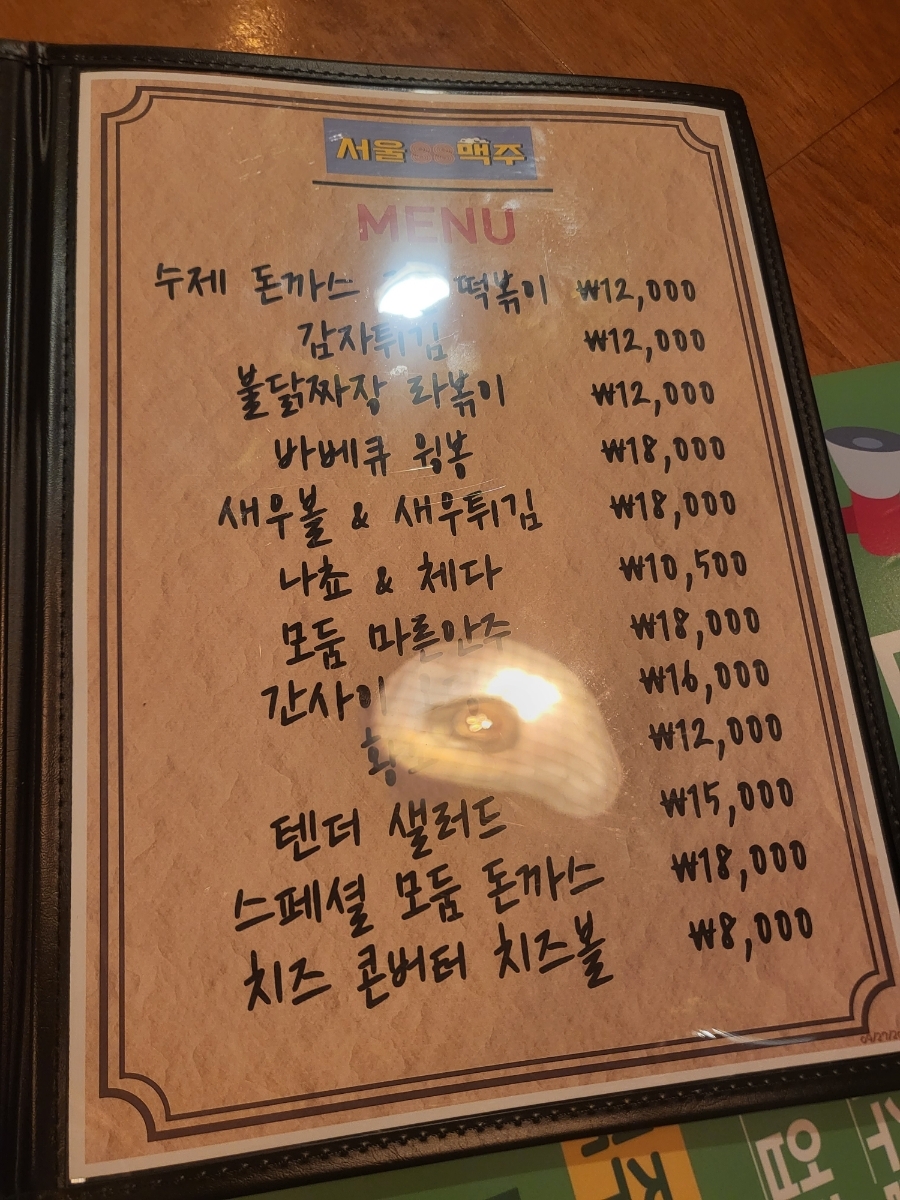 서울 SS맥주
MENU
수제 돈까스 떡볶이 ₩12,000
감자튀김 ₩12,000
불닭짜장 라볶이 ₩12,000
바베큐 윙봉 ₩18,000
새우볼 & 새우튀김 ₩18,000
나쵸 & 체다 ₩10,500
모둠 마른안주 ₩18,000
간사이 ₩16,000
₩12,000
텐더 샐러드 ₩15,000
스페셜 모둠 돈까스 ₩18,000
치즈 콘버터 치즈볼 ₩8,000